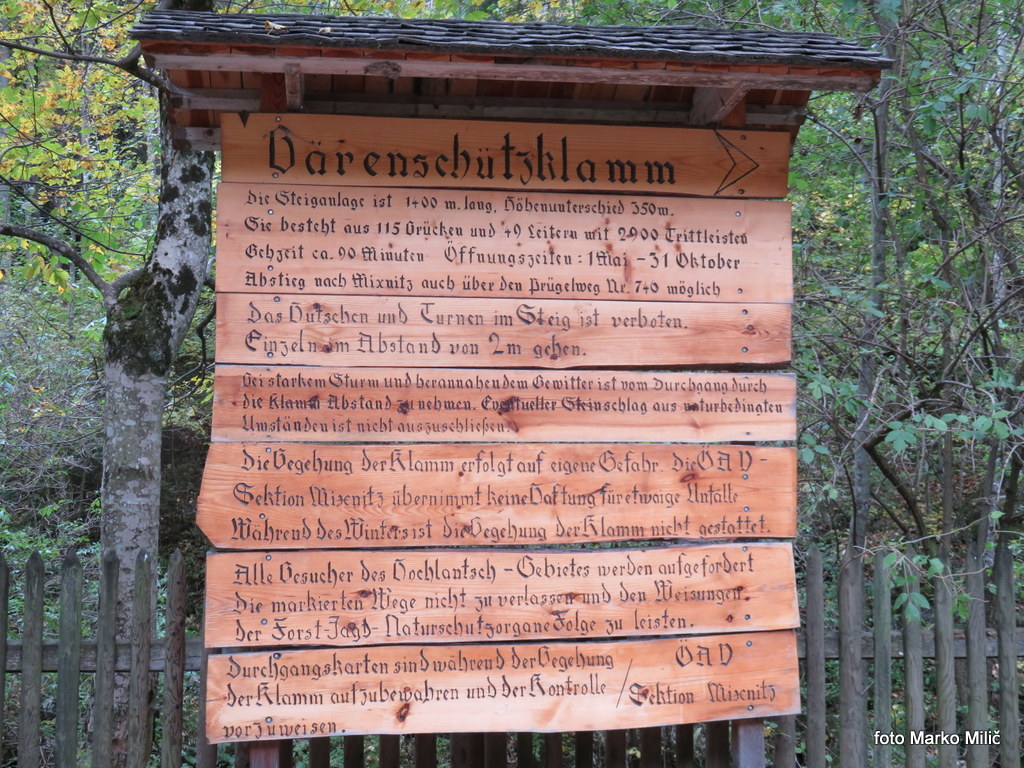 Bärenschützklamm
Die Steiganlage ist 1400 m. lang, Höhenunterschied 350m.
Sie besteht aus 115 Brücken und 49 Leitern mit 2900 Trittleisten
Gehzeit ca. 90 Minuten Öffnungszeiten: 1 Mai - 31 Oktober
Abstieg nach Mixnitz auch über den Prügelweg Nr. 746 möglich
Das Hutschen und Turnen im Steig ist verboten.
Einzeln im Abstand von 2m gehen.
Bei starkem Sturm und herannahendem Gewitter ist vom Durchgang durch
die Klamm Abstand zu nehmen. Eventueller Steinschlag aus naturbedingten
Umständen ist nicht auszuschließen.
Die Begehung der Klamm erfolgt auf eigene Gefahr. Die ÖAV-
Sektion Mixnitz übernimmt keine Haftung für etwaige Unfälle
Während des Winters ist die Begehung der Klamm nicht gestattet.
Alle Besucher des Hochlantsch - Gebietes werden aufgefordert
Die markierten Wege nicht zu verlassen und den Weisungen
der Forst-Jagd- Naturschutzorgane Folge zu leisten.
Durchgangskarten sind während der Begehung ÖAV
der Klamm aufzubewahren und der Kontrolle / Sektion Mixnitz
vorzuweisen.
foto Marko Milič